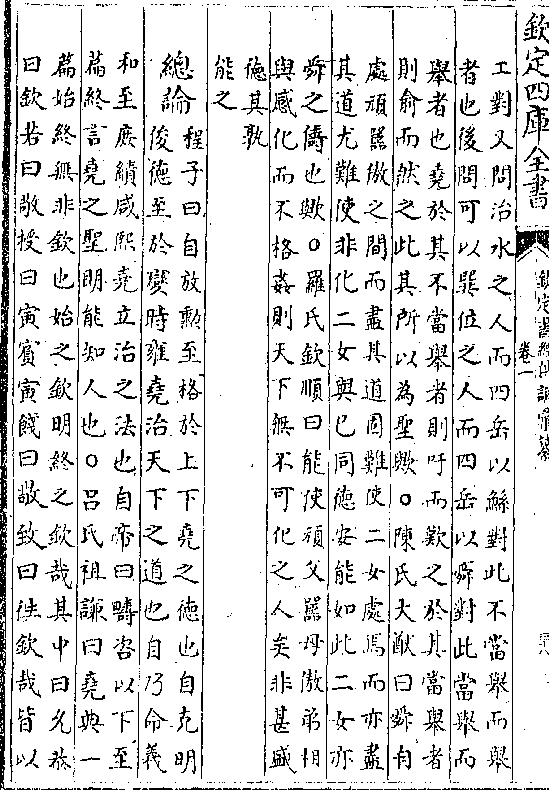 欽定四庫全書
欽定書經傳說彙纂
卷一
工對又問治水之人而四岳以鯀對此不當舉而舉
者也後問可以巽位之人而四岳以舜對此當舉而
舉者也堯於其不當舉者則吁而歎之於其當舉者
則俞而然之此其所以為聖歟○陳氏大猷曰舜自
處頑嚚傲之間而盡其道固難使二女處焉而亦盡
其道尤難使非化二女與已同德安能如此二女亦
舜之儔也歟○羅氏欽順曰能使頑父嚚母傲弟相
與感化而不格姦則天下無不可化之人矣非甚盛
德其孰
能之
總論
程子曰自放勳至格於上下堯之德也自克明
俊德至於變時雍堯治天下之道也自乃命羲
和至庶績咸熙堯立治之法也自帝曰疇咨以下至
篇終言堯之聖明能知人也○呂氏祖謙曰堯典一
篇始終無非欽也始之欽明終之欽哉其中曰允恭
曰欽若曰敬授曰寅賓寅餞曰敬致曰往欽哉皆以